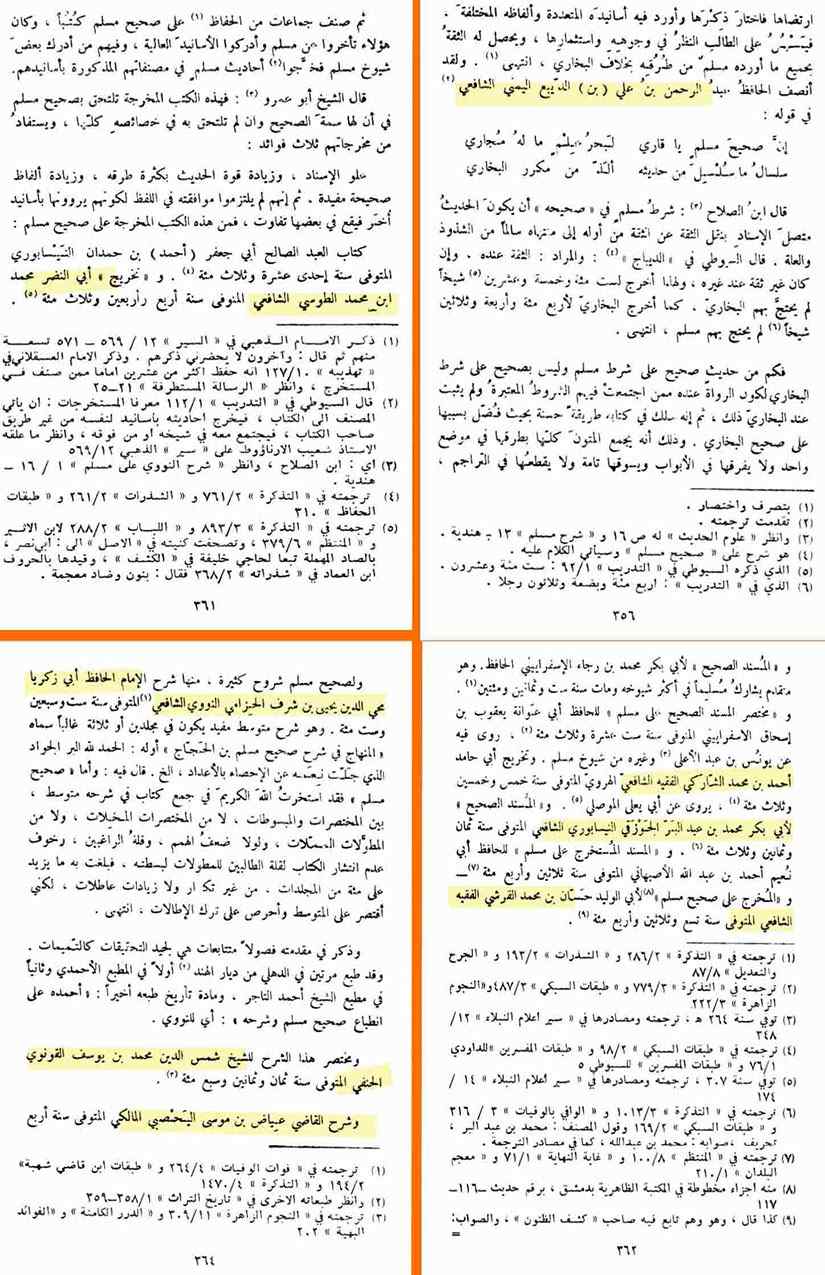 ارتضاها فاختار ذكرها وأورد فيه أسانيده المتعددة وألفاظه المختلفة .
على الطالب النظر في وجوهه واستثمارها ، ويحصل له الثقة
بجميع ما أورده مسلم من طرقه بخلاف البخاري ، انتهى (١) . ولقد
أنصف الحافظ عبد الرحمن بن علي (بن) الديبع اليمني الشافعي (٢)
في قوله :
إن صحيح مسلم يا قاري لبحر علم ما له مجاري
سلسال ما سلسل من حديثه ألذ من مكرر البخاري
قال ابن الصلاح (٣) : شرط مسلم في « صحيحه » أن يكون الحديث
متصل الإسناد بنقل الثقة عن الثقة من أوله إلى منتهاه سالماً من الشذوذ
والعلة . قال السيوطي في « الديباج » (٤) : والمراد : الثقة عنده . وإن
كان غير ثقة عند غيره ، ولهذا أخرج لست مئة وخمسة وعشرين (٥) شيخاً
لم يحتج بهم البخاري . كما أخرج البخاري لأربع مئة وأربعة وثلاثين
شيخاً (٦) لم يحتج بهم مسلم ، انتهى .
فكم من حديث صحيح على شرط مسلم وليس بصحيح على شرط
البخاري لكون الرواة عنده ممن اجتمعت فيهم الشروط المعتبرة ولم يثبت
عند البخاري ذلك ، ثم إنه سلك في كتابه طريقة حسنة بحيث فضل بسببها
على صحيح البخاري . وذلك أنه يجمع المتون كلها بطرقها في موضع
واحد ولا يفرقها في الأبواب ويسوقها تامة ولا يقطعها في التراجم ،
(١) بتصرف واختصار .
(٢) تقدمت ترجمته .
(٣) وانظر « علوم الحديث » له ص ١٦ و « شرح مسلم » ١٣ - هندية .
(٤) هو شرح على « صحيح مسلم » وسيأتي الكلام عليه .
(٥) الذي ذكره السيوطي في « التدريب » ٩٢/١ : ست مئة وعشرون .
(٦) الذي في « التدريب » : أربع مئة وبضعة وثلاثون رجلا .
٣٥٦
ثم صنف جماعات من الحفاظ (١) على صحيح مسلم كتباً ، وكان
هؤلاء تأخروا عن مسلم وأدركوا الأسانيد العالية ، وفيهم من أدرك بعض
شيوخ مسلم فخرجوا (٢) أحاديث مسلم في مصنفاتهم المذكورة بأسانيدهم.
قال الشيخ أبو عمرو (٣) : فهذه الكتب المخرجة تلتحق بصحيح مسلم
في أن لها سمة الصحيح وان لم تلتحق به في خصائصه كلها ، ويستفاد
من مخرجاتهم ثلاث فوائد :
علو الإسناد ، وزيادة قوة الحديث بكثرة طرقه ، وزيادة ألفاظ
صحيحة مفيدة . ثم إنهم لم يلتزموا موافقته في اللفظ لكونهم يروونها بأسانيد
أخر فيقع في بعضها تفاوت ، فمن هذه الكتب المخرجة على صحيح مسلم :
كتاب العبد الصالح أبي جعفر (أحمد) بن حمدان النيسابوري
المتوفى سنة إحدى عشرة وثلاث مئة (٤) . و « تخريج » أبي النضر محمد
ابن محمد الطوسي الشافعي المتوفى سنة أربع وأربعين وثلاث مئة (٥) .
(١) ذكر الامام الذهبي في « السير » ١٢ / ٥٦٩ – ٥٧١ تسعة
منهم ثم قال : وآخرون لا يحضرني ذكرهم . وذكر الامام العسقلاني في
« تهذيبه » ١٢٧/١٠ انه حفظ اكثر من عشرين اماما ممن صنف في
المستخرج ، وانظر « الرسالة المستطرفة » ٢١–٢٥
(٢) قال السيوطي في « التدريب » ١١٢/١ معرفا المستخرجات : أن يأتي
المصنف الى الكتاب ، فيخرج أحاديثه بأسانيد لنفسه من غير طريق
صاحب الكتاب ، فيجتمع معه في شيخه أو من فوقه ، وانظر ما علقه
الاستاذ شعيب الارناؤوط على « سير » الذهبي ٥٦٩/١٢
(٣) أي : ابن الصلاح ، وانظر « شرح النووي على مسلم » ١ / ١٦ –
هندية .
(٤) ترجمته في « التذكرة » ٧٦١/٢ و « الشذرات » ٢٦١/٢ و « طبقات
الحفاظ » ٣١٠
(٥) ترجمته في « التذكرة » ٨٩٣/٣ و « اللباب » ٢٨٨/٢ لابن الاثير
و « المنتظم » ٣٧٩/٦ ، وتصحفت كنيته في « الاصل » الى : أبي نصر ،
بالصاد المهملة تبعا لحاجي خليفة في « الكشف » ، وقيدها بالحروف
ابن العماد في « شذراته » ٣٦٨/٢ فقال : بنون وضاد معجمة .
٣٦١
و « المسند الصحيح » لأبي بكر محمد بن رجاء الإسفراييني الحافظ. وهو
متقدم يشارك مسلماً في أكثر شيوخه ومات سنة ست وثمانين ومئتين (١) .
و « مختصر المسند الصحيح على مسلم » للحافظ أبي عوانة يعقوب بن
إسحاق الاسفراييني المتوفى سنة ست عشرة وثلاث مئة (٢) ، روى فيه
عن يونس بن عبد الأعلى (٣) وغيره من شيوخ مسلم . وتخريج أبي حامد
أحمد بن محمد الشاركي الفقيه الشافعي الهروي المتوفى سنة خمس وخمسين
وثلاث مئة (٤) ، يروى عن أبي يعلى الموصلي (٥) . و « المسند الصحيح »
لأبي بكر محمد بن عبد الله الجوزقي النيسابوري الشافعي المتوفى سنة ثمان
وثمانين وثلاث مئة (٦) . و « المسند المستخرج على مسلم » للحافظ أبي
نعيم أحمد بن عبد الله الأصبهاني المتوفى سنة ثلاثين وأربع مئة (٧) –
و « المخرج على صحيح مسلم » (٨) لأبي الوليد حسان بن محمد القرشي الفقيه
الشافعي المتوفى سنة تسع وثلاثين وأربع مئة (٩) .
(١) ترجمته في « التذكرة » ٢٨٦/٢ و « الشذرات » ١٩٣/٢ و « الجرح
والتعديل » ٨٧/٨
(٢) ترجمته في « التذكرة » ٧٧٩/٣ و « طبقات السبكي » ٤٨٧/٣ و«النجوم
الزاهرة » ٢٢٢/٣
(٣) توفي سنة ٢٦٤ هـ ، ترجمته ومصادرها في « سير أعلام النبلاء » ١٢/
٣٤٨
(٤) ترجمته في « طبقات السبكي » ٩٨/٢ و « طبقات المفسرين »للداودي
٧٦/١ و « طبقات المفسرين » للسيوطي ٥
(٥) توفي سنة ٣٠٧ ، ترجمته ومصادرها في « سير أعلام النبلاء » ١٤ /
١٧٤
(٦) ترجمته في « التذكرة » ١٠١٣/٣ و « الوافي بالوفيات » ٣ / ٣١٦
و « طبقات السبكي » ١٦٩/٢ وقول المصنف : محمد بن عبد البر ،
تحريف ، صوابه : محمد بن عبدالله ، كما في مصادر الترجمة .
(٧) ترجمته في « المنتظم » ١٠٠/٨ و « غاية النهاية » ٧١/١ و « معجم
البلدان » ٢١٠/١
(٨) منه أجزاء مخطوطة في المكتبة الظاهرية بدمشق ، برقم حديث –١١٦–
١١٧
(٩) كذا قال ، وهو وهم تابع فيه صاحب « كشف الظنون » ، والصواب:
=
٣٦٢
ولصحيح مسلم شروح كثيرة ، منها شرح الإمام الحافظ أبي زكريا
محي الدين يحيى بن شرف الحزامي النووي الشافعي (١) المتوفى سنة ست وسبعين
وست مئة . وهو شرح متوسط مفيد يكون في مجلدين أو ثلاثة غالباً سماه
« المنهاج في شرح صحيح مسلم بن الحجاج » أوله : الحمد لله البر الجواد
الذي جلت نعمه عن الإحصاء بالأعداد ، الخ . قال فيه : وأما « صحيح
مسلم » فقد استخرت الله الكريم في جمع كتاب في شرحه متوسط ،
بين المختصرات والمبسوطات ، لا من المختصرات المخلات ، ولا من
المطولات المملات ، ولولا ضعف الهمم ، وقلة الراغبين ، وخوف
عدم انتشار الكتاب لقلة الطالبين للمطولات لبسطته ، فبلغت به ما يزيد
على مئة من المجلدات . من غير تكرار ولا زيادات عاطلات ، لكني
أقتصر على المتوسط وأحرص على ترك الإطالات ، انتهى .
وذكر في مقدمته فصولاً متتابعات هي لجيد التحقيقات كالتتميمات .
وقد طبع مرتين في الدهلي من ديار الهند (٢) أولاً في المطبع الأحمدي وثانياً
في مطبع الشيخ أحمد التاجر . ومادة تأريخ طبعه أخيراً : « أحمده على
انطباع صحيح مسلم وشرحه » : أي للنووي .
ومختصر هذا الشرح للشيخ شمس الدين محمد بن يوسف القونوي
الحنفي المتوفى سنة ثمان وثمانين وسبع مئة (٣) .
وشرح القاضي عياض بن موسى اليحصبي المالكي المتوفى سنة أربع
(١) ترجمته في « فوات الوفيات » ٢٦٤/٤ و « طبقات ابن قاضي شهبة»
١٩٤/٢ و « التذكرة » ١٤٧٠/٤
(٢) وانظر طبعاته الاخرى في « تاريخ التراث » ٣٥٨/١–٣٥٩
(٣) ترجمته في « النجوم الزاهرة » ٣٠٩/١١ و « الدرر الكامنة » و «الفوائد
البهية » ٢٠٢
٣٦٤